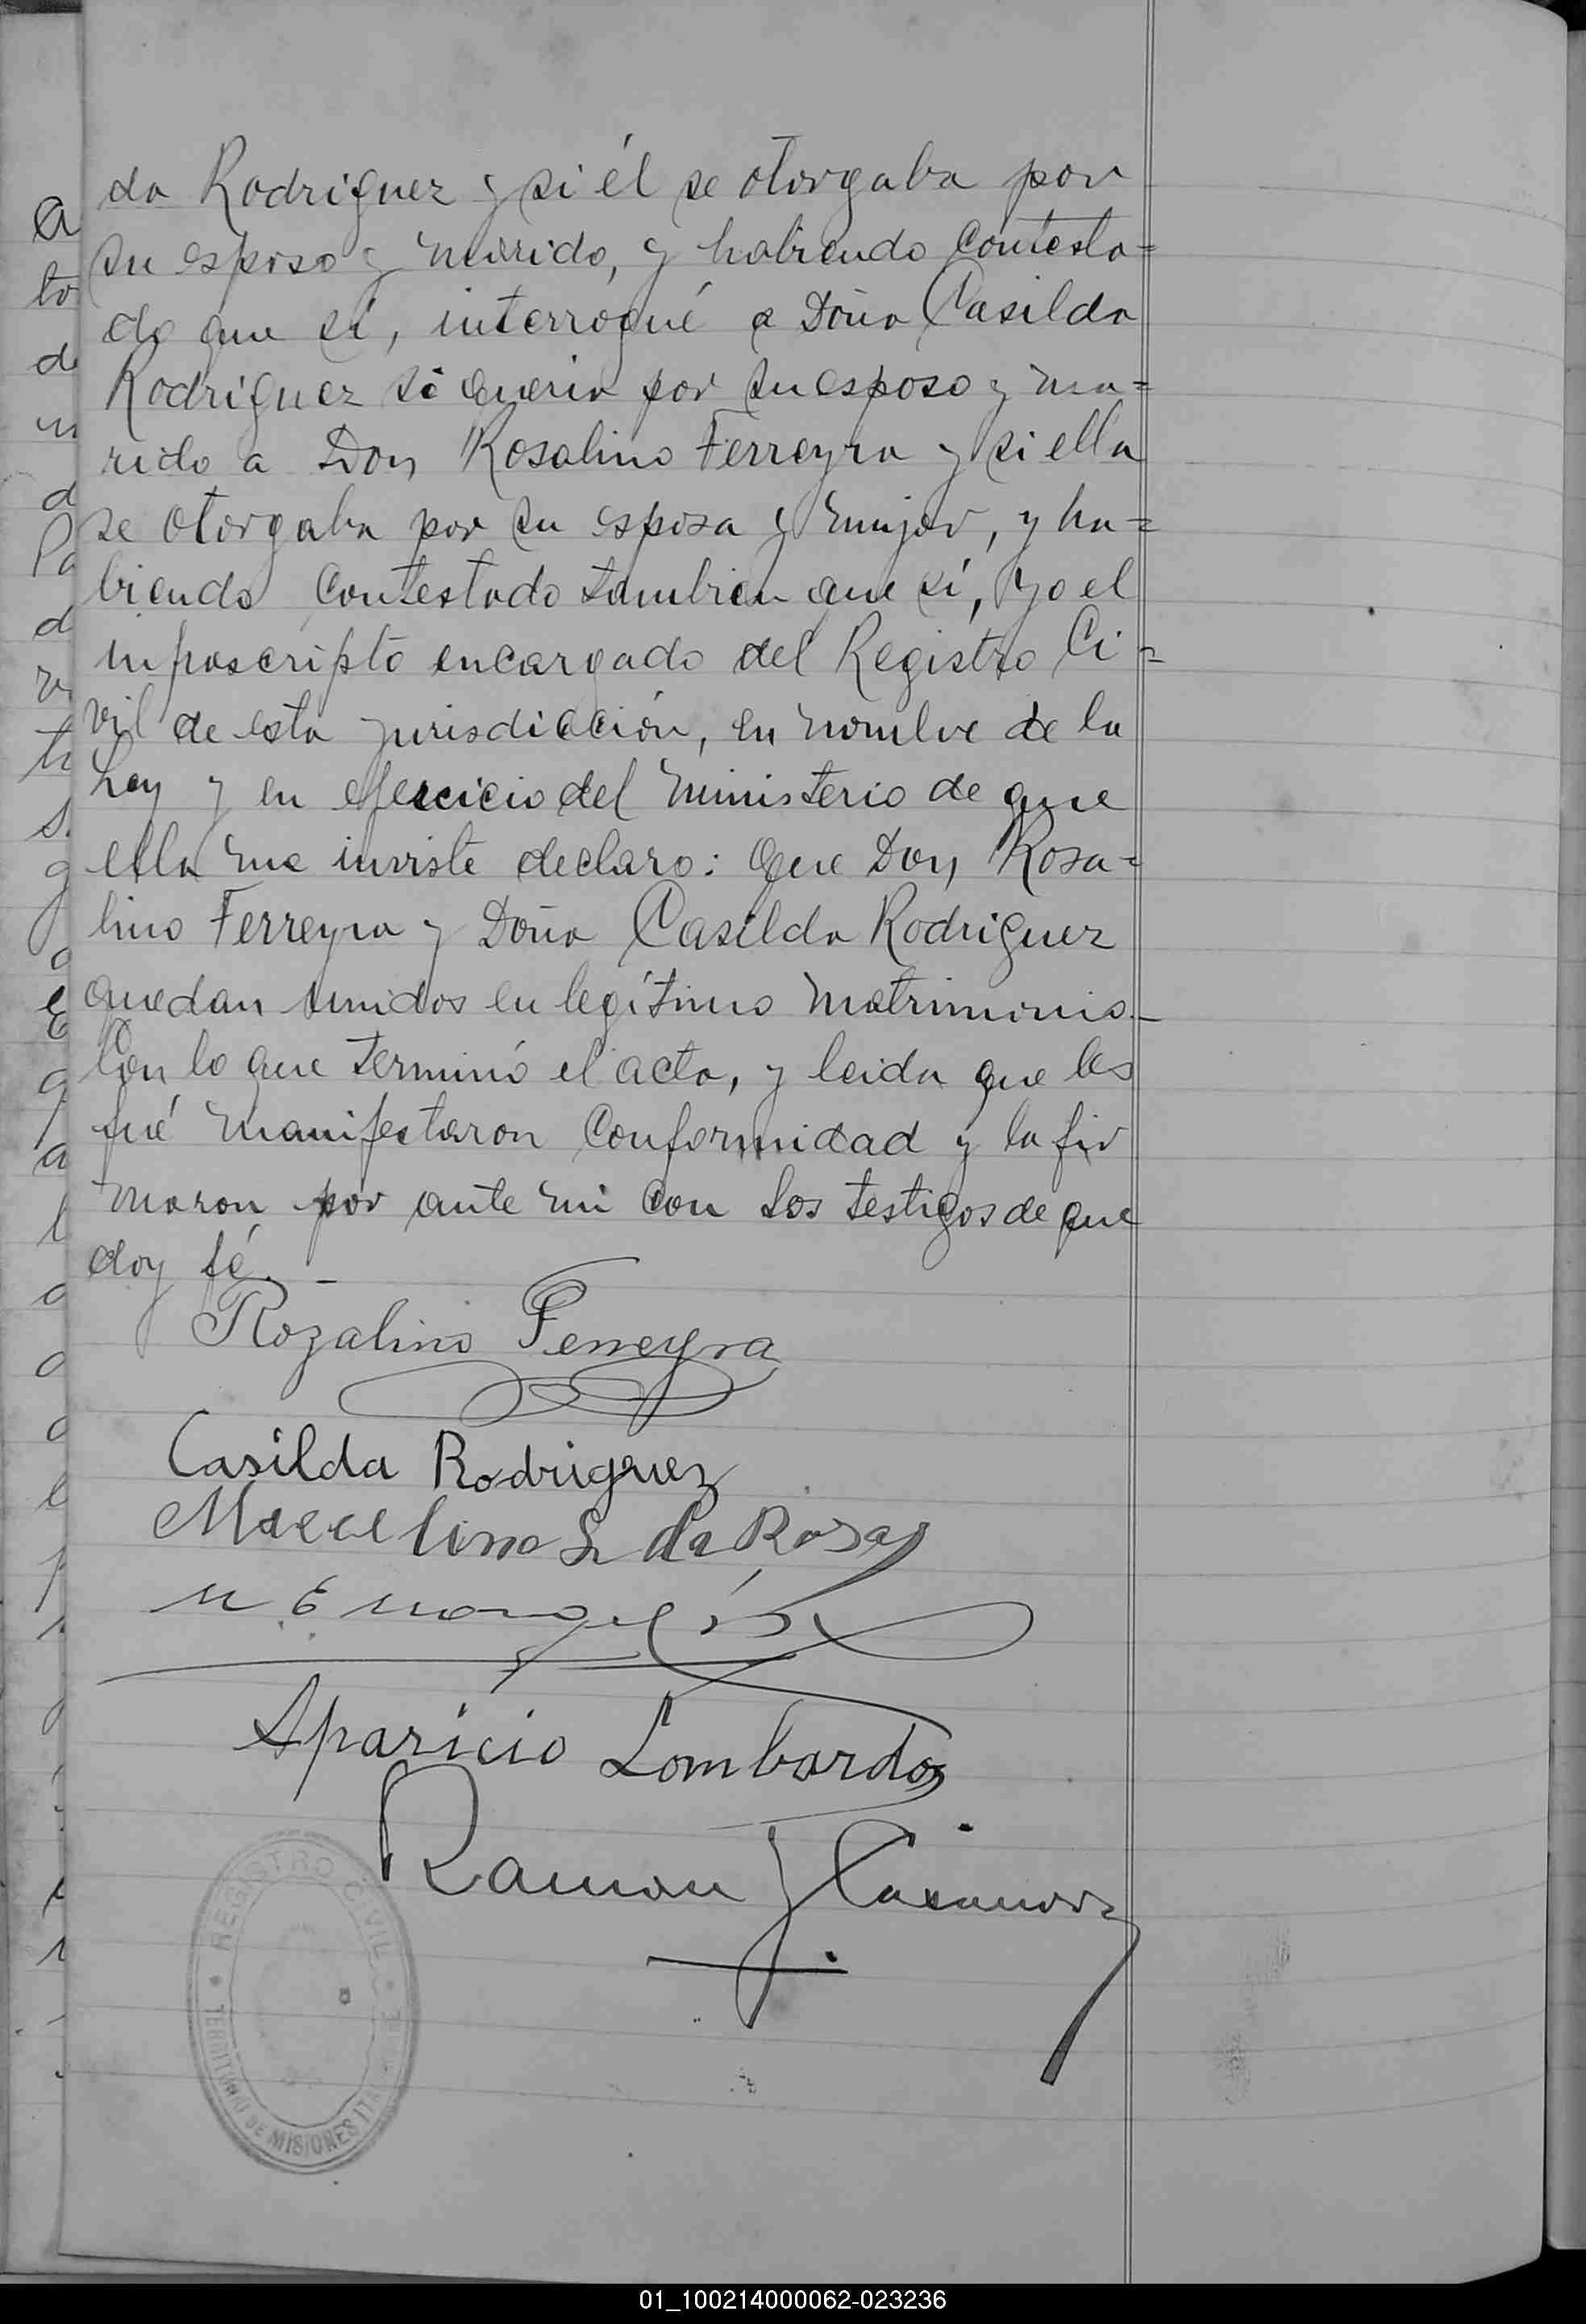 da Rodriguez y si él se otorgaba por
su esposo y marido, y habiendo contesta=
do que sí, interrogué a Doña Casilda
Rodriguez si queria por su esposo y ma=
rido a Don Rosalino Ferreyra y si ella
se otorgaba por su esposa y mujer, y ha=
biendo contestado tambien que sí, yo el
infrascripto encargado del Registro Ci=
vil de esta jurisdicción, en nombre de la
Ley y en ejercicio del ministerio de que
ella me inviste declaro: Que Don Rosa=
lino Ferreyra y Doña Casilda Rodriguez
quedan unidos en legítimo matrimonio_
Con lo que terminó el acto, y leida que les
fué manifestaron conformidad y la fir
maron por ante mi con los testigos de que
doy fé. _
Rozalino Ferreyra
Casilda Rodriguez
Marcelino S. da Rosa
Aparicio Lombardo
Ramon J. Casanova
REGISTRO CIVIL
TERRITORIO DE MISIONES
01_100214000062-023236